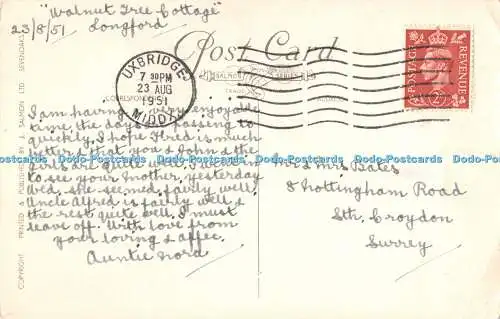 "Walnut Tree Cottage"
23/8/51 Longford
Post Card
UXBRIDGE
7 30PM
23 AUG
1951
MIDDX.
SALMON SERIES
TRADE
CORRESPONDENCE
ADDRESS
POSTAGE REVENUE
I am having a very enjoyable
time, the days are passing to
quickly, I hope Fred is much
better, that you & John & the
girls are quite well, I went
to see your mother, yesterday
Wed, she seemed fairly well,
Uncle Alfred is fairly well, &
the rest quite well, I must
leave off. With love from
your loving & affec.
Auntie Nora
Mr & Mrs Bates
8 Nottingham Road
Sth. Croydon
Surrey
COPYRIGHT PRINTED & PUBLISHED BY J. SALMON LTD SEVENOAKS
Dodo-Postcards Dodo-Postcards Dodo-Postcards Dodo-Postcards Dodo-Postcards Dodo-Postcards